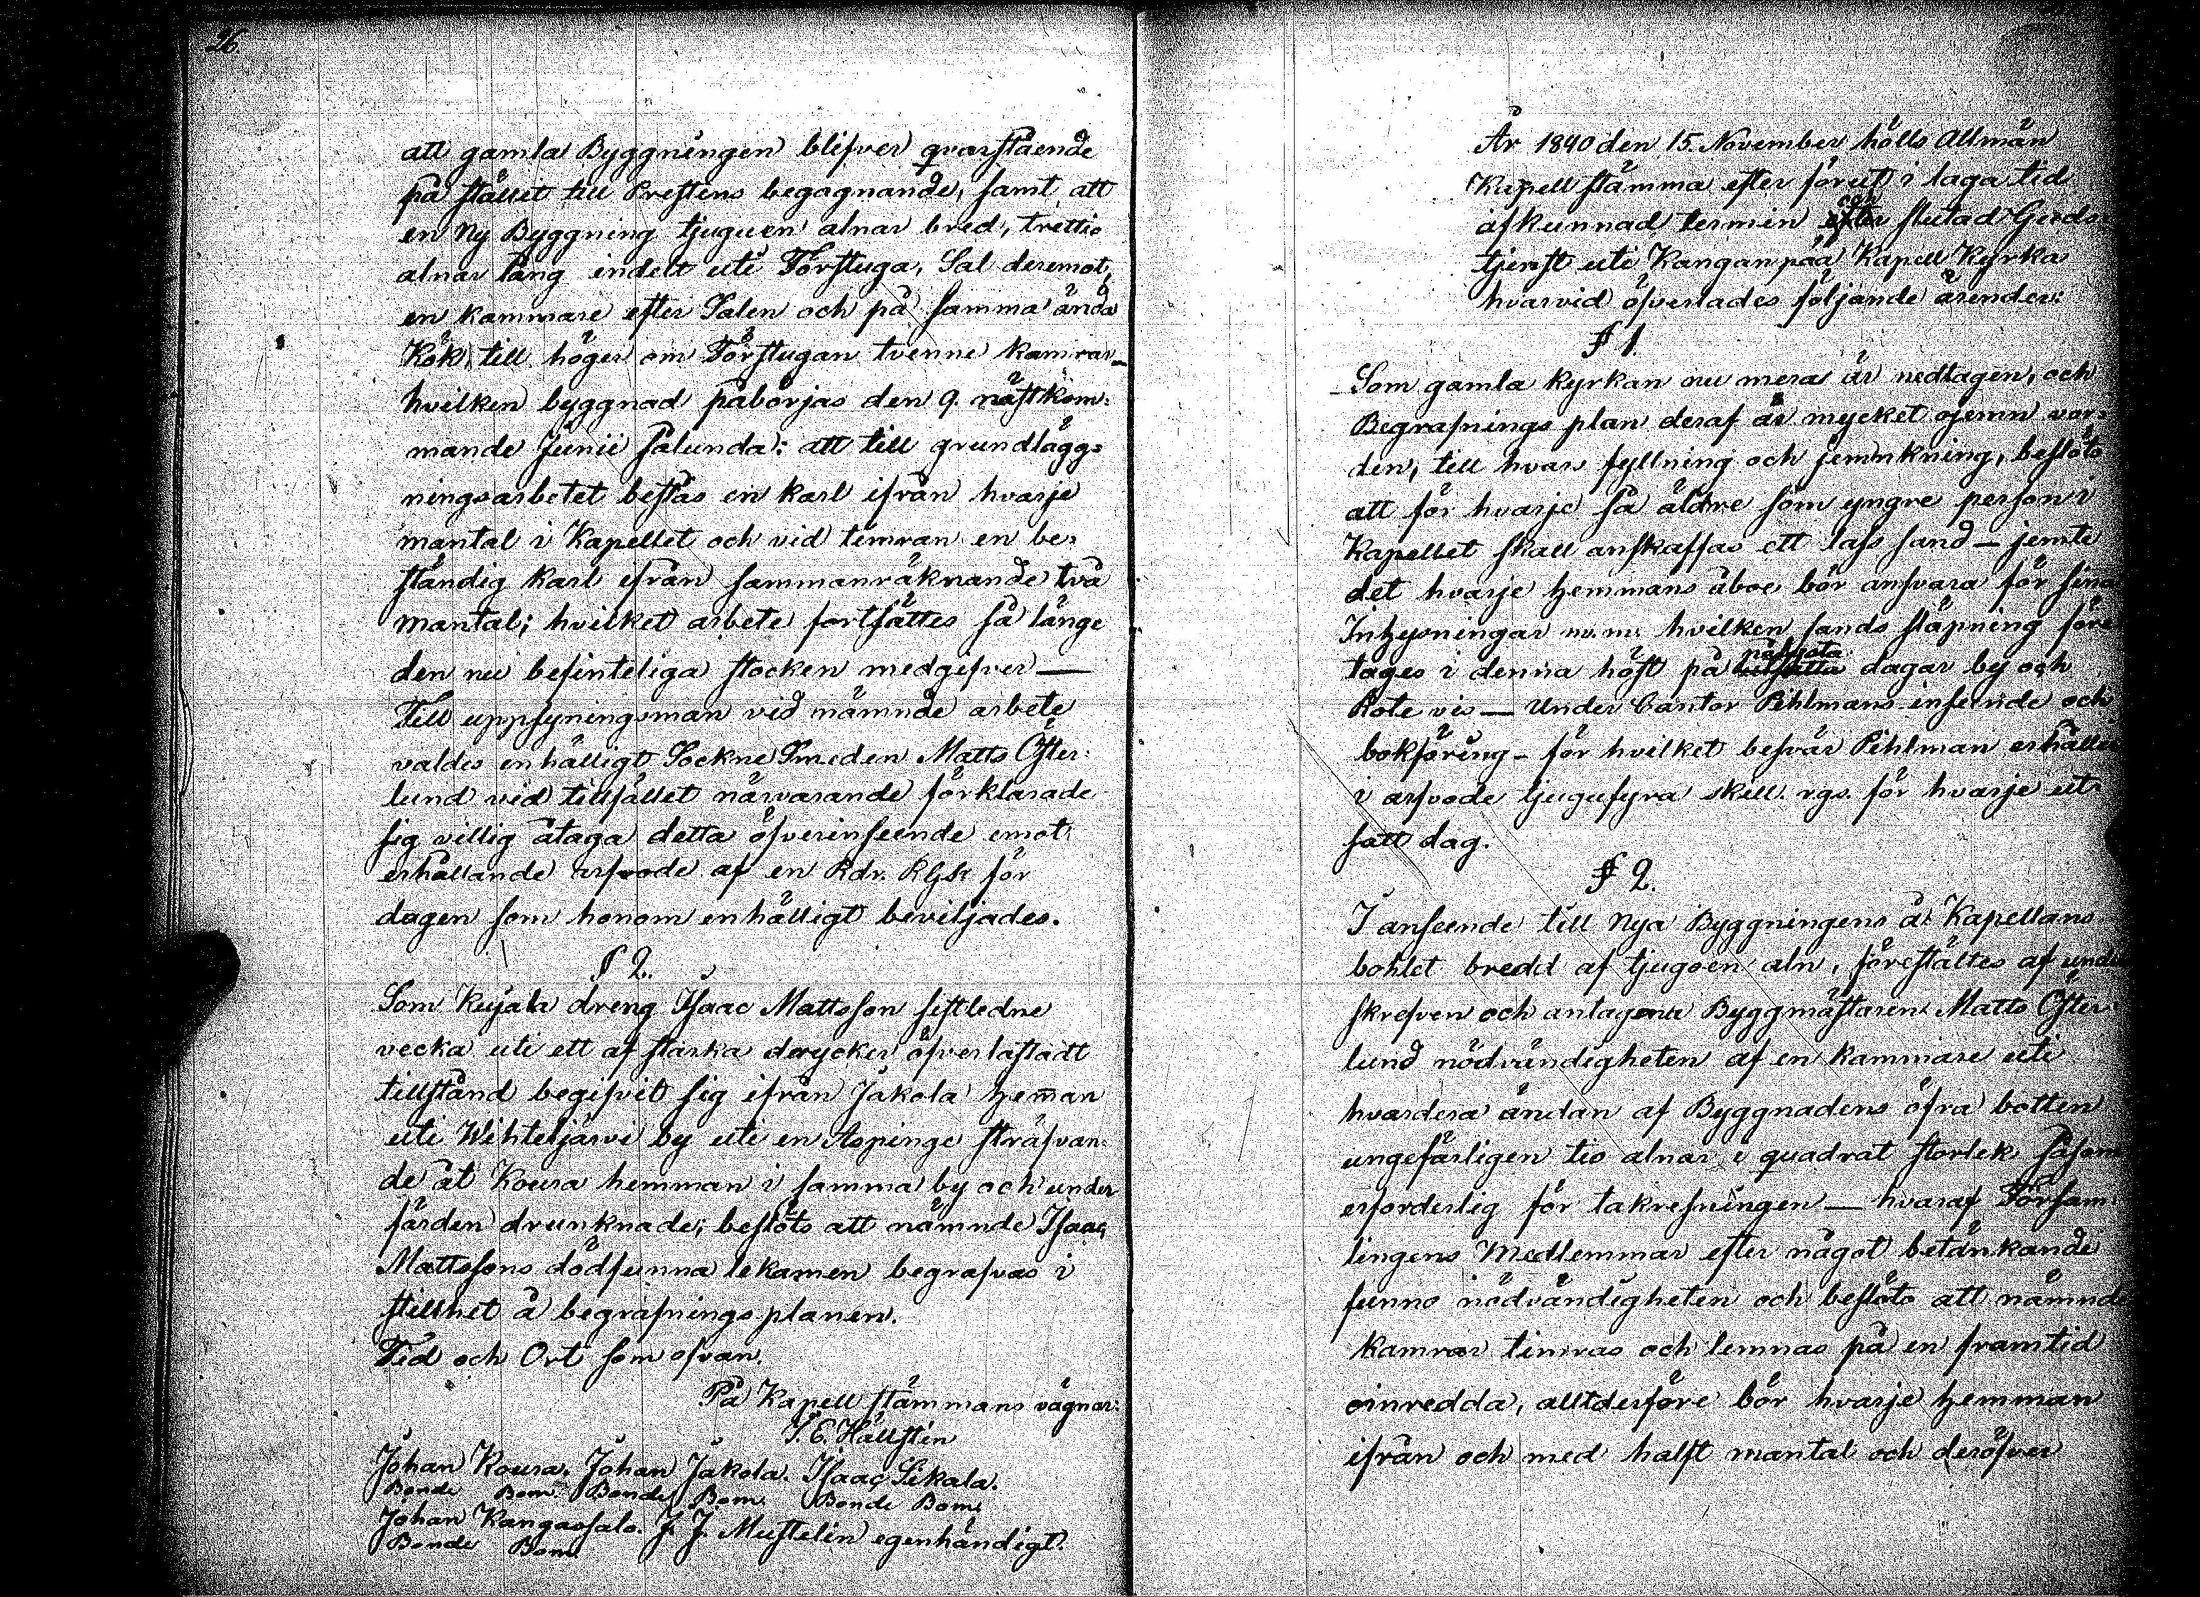 26.
att gamla Byggningen blifver qvarstående
på stället till Prestens begagnande, samt att
en Ny Byggning tjuguen alnar bred, trettio
alnar lång indelt uti Förstuga, Sal deremot,
en kammare efter Salen och på samma ända
Kök, till höger om Förstugan tvenne kamrar —
hvilken byggnad påbörjas den 9. nästkom-
mande Junii sålunda: att till grundlägg-
ningsarbetet bestås en karl ifrån hvarje
mantal i Kapellet och vid timran en be-
ständig karl ifrån sammanräknande två
mantal; hvilket arbete fortsättes så länge
den nu befinteliga stocken medgifver —
Till uppsyningsman vid nämnde arbete
valdes enhälligt Sockne Smeden Matts Öster-
lund vid tillfället närvarande förklarade
sig villig åtaga detta öfverinseende emot
erhållande arfvode af en Rdr. RGS för
dagen som honom enhälligt beviljades.
§ 2.
Som Kujala dreng Isaac Mattsson sistledne
vecka uti ett af starka drycker öfverlastadt
tillstånd begifvit sig ifrån Jakola heman
uti Wihteljärvi by uti en Aspinge sträfvan-
de åt Koura hemman i samma by och under
färden drunknade; beslöts att nämnde Isaac
Mattssons dödfunna lekamen begrafvas i
stillhet å begrafningsplanen.
Tid och Ort som ofvan.
På Kapell stämmans vägnar:
I. E. Hällstin
Johan Koura. Johan Jakola. Isaac Sikala.
Bonde Bom. Bonde Bom. Bonde Bom.
Johan Kangassalo. J. J. Mustelin egenhändigt.
Bonde Bom.
År 1840 den 15. November hölls Allmän
Kapell stämma efter förut i laga tid
afkunnad termin och slutad Guds-
tjenst uti Kanganpää Kapell Kyrka
hvarvid öfverlades följande ärenden:
§ 1.
Som gamla kyrkan nu mera är nedtagen, och
Begrafnings plan deraf är mycket ojemn vor-
den, till hvars fyllning och jemnkning, beslöts
att för hvarje så äldre som yngre person i
Kapellet skall anskaffas ett lass sand — jemte
det hvarje hemmans åboe bör ansvara för sina
Inhysningar m.m. hvilken sands släpning före
tages i denna höst på påbjudna dagar by och
Rote vis — Under Cantor Pihlmans inseende och
bokföring — för hvilket besvär Pihlman erhåller
i arfvode tjugufyra skill. rgs. för hvarje ut
satt dag.
§ 2.
I anseende till Nya Byggningens å Kapellans
bohlet bredd af tjugoen aln, föreställtes af under
skrefven och antagena Byggmästaren Matts Öster
lund nödvändigheten af en kammare uti
hvardera ändan af Byggnadens öfra botten
ungefärligen tio alnar i quadrat storlek såsom
erforderlig för takresningen — hvaraf Församlingens
lingens Medlemmar efter något betänkande
funno nödvändigheten och beslöto att nämnde
kamrar timras och lemnas på en framtid
oinredda, alltderföre bör hvarje hemman
ifrån och med halft mantal och deröfver